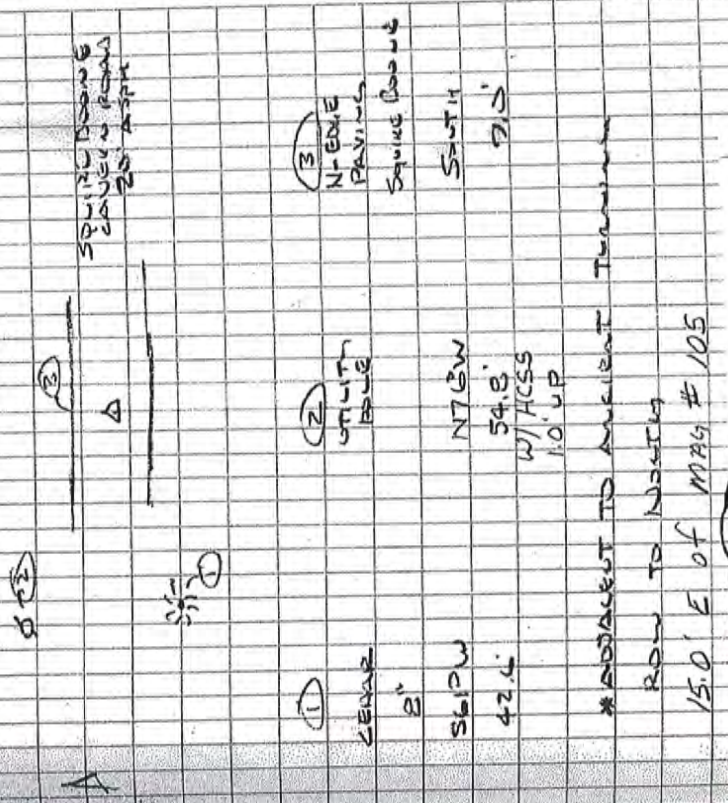 SQUIRE BOONE
CAVERN ROAD
20' ASPH
3
2
1
1
CEDAR
8"
S61°W
42.6'
2
UTILITY
POLE
N76°W
54.8'
W/ HCSS
1.0' UP
3
N-EDGE
PAVING
Squire Boone
SOUTH
7.0'
*ADJACENT TO ANCIENT
ROW TO NORTH
15.0' E of MAG # 105